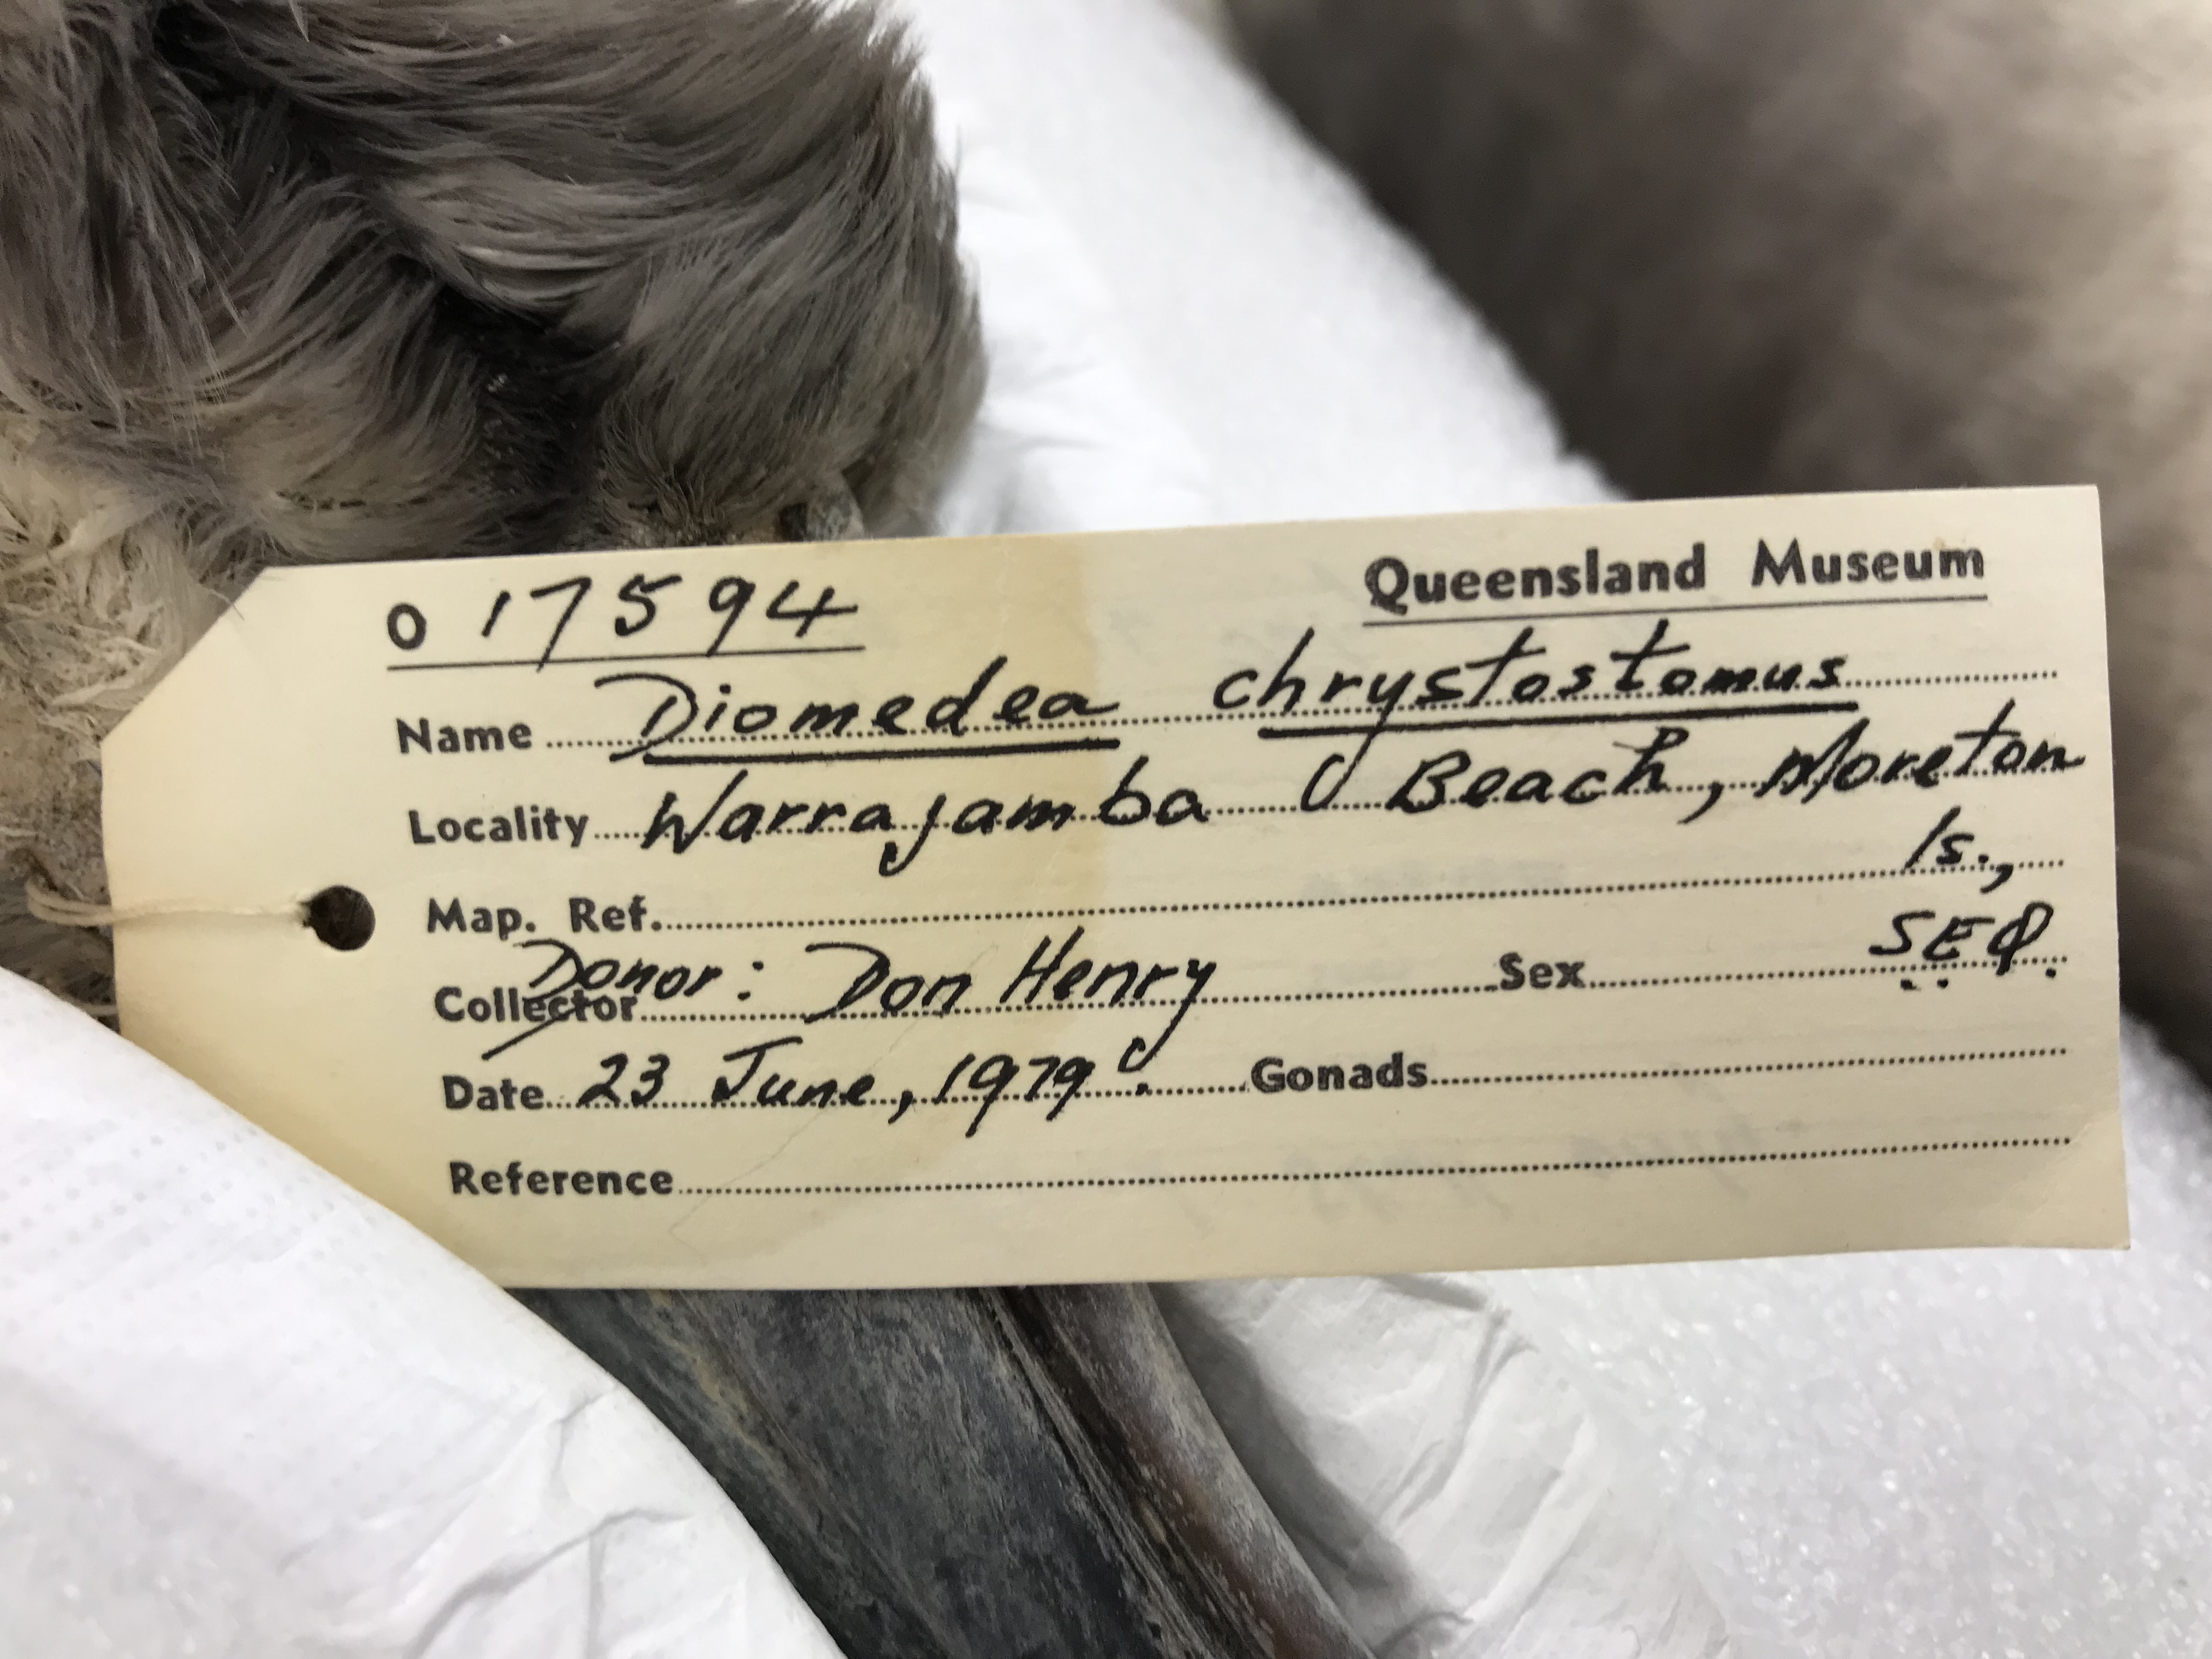 O 17594
Queensland Museum
Name Diomedea chrystostomus
Locality Warrajamba Beach, Moreton
Map. Ref. Is.,
Collector Donor: Don Henry Sex SEQ.
Date 23 June, 1979 Gonads
Reference